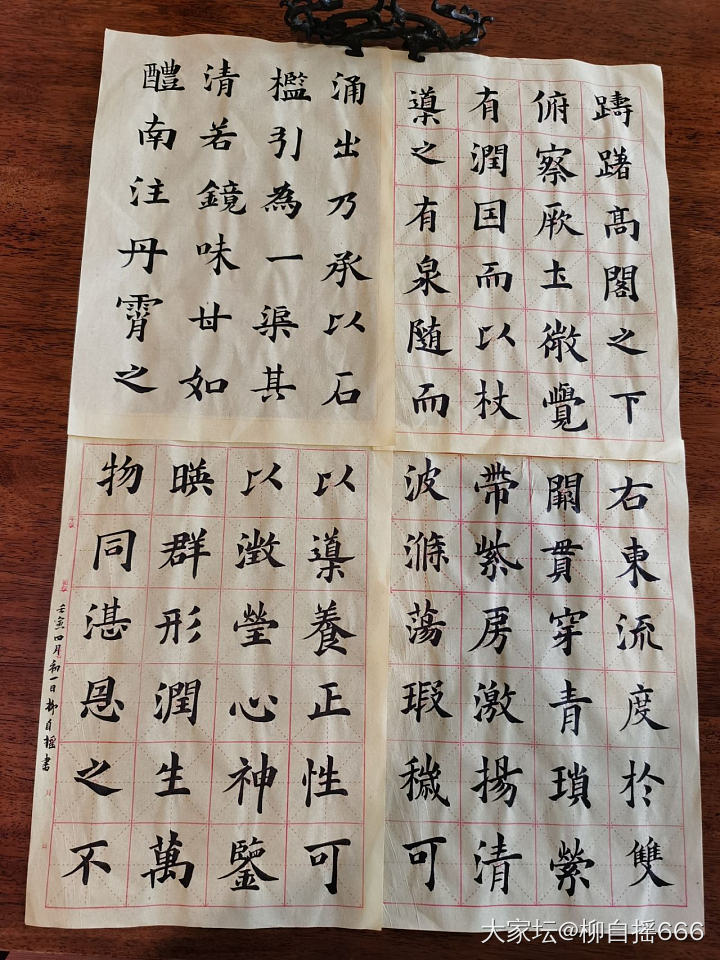 躊躇高閣之下
俯察厥土微覺
有潤因而以杖
導之有泉随而
涌出乃承以石
檻引為一渠其
清若鏡味甘如
醴南注丹霄之
右東流度於雙
闕貫穿青瑣縈
帶紫房激揚清
波滌蕩瑕穢可
以導養正性可
以澂瑩心神鑒
暎群形潤生萬
物同湛恩之不
壬寅四月初一日柳自摇書
大家坛@柳自摇666